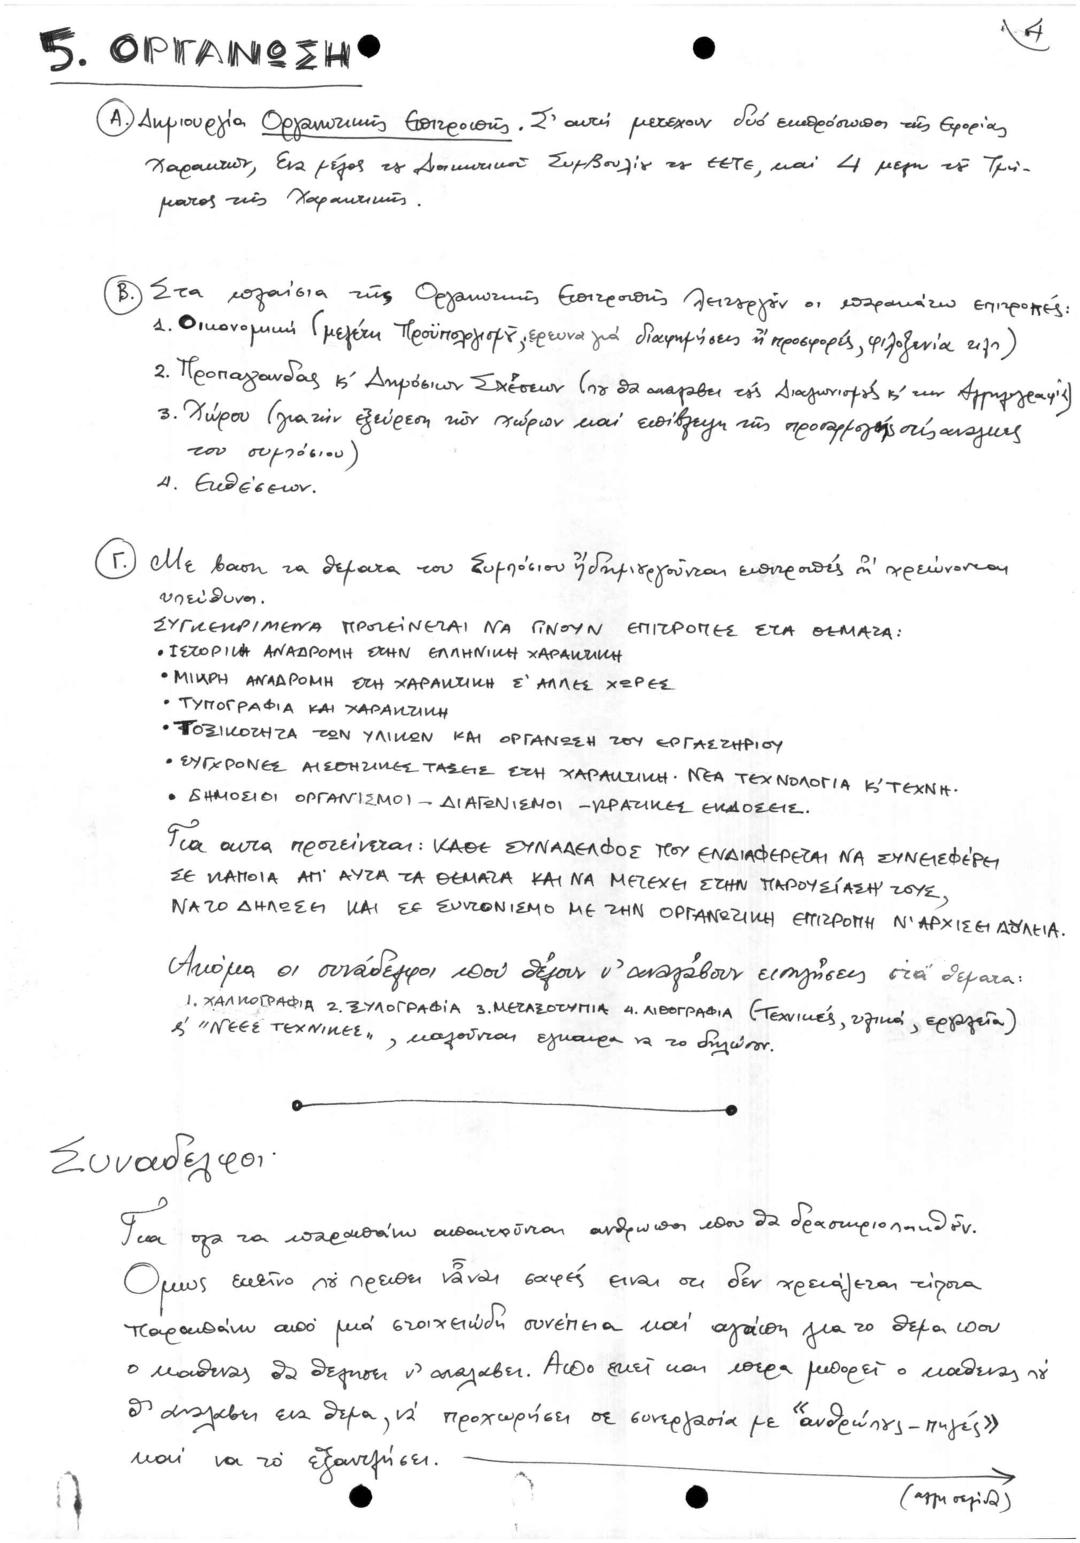 4
5. ΟΡΓΑΝΩΣΗ
Α. Δημιουργία Οργανωτικής Επιτροπής. Σ' αυτή μετέχουν δύο εκπρόσωποι της Εφορίας
Χαρακτών, Ένα μέλος του Διοικητικού Συμβουλίου του ΕΕΤΕ, καί 4 μέλη του Τμή-
ματος της Χαρακτικής.
Β. Στα πλαίσια της Οργανωτικής Επιτροπής λειτουργούν οι παρακάτω επιτροπές:
1. Οικονομική (μελέτη Προϋπολογισμού, έρευνα γιά διαφημήσεις ή προσφορές, φιλοξενία κλπ)
2. Προπαγανδας κ' Δημόσιων Σχέσεων (που θα αναλάβει τούς Διαγωνισμούς κ' την Αρθρογραφία)
3. Χώρου (για την εξεύρεση των χώρων καί επίβλεψη της προσαρμογής στίς ανάγκες
του συμπόσιου)
4. Εκθέσεων.
Γ. Με βαση τα θεματα του Συμπόσιου ή δημιουργούνται επιτροπές ή χρεώνονται
υπεύθυνοι.
ΣΥΓΚΕΚΡΙΜΕΝΑ ΠΡΟΤΕΙΝΕΤΑΙ ΝΑ ΓΙΝΟΥΝ ΕΠΙΤΡΟΠΕΣ ΣΤΑ ΘΕΜΑΤΑ:
• ΙΣΤΟΡΙΚΗ ΑΝΑΔΡΟΜΗ ΣΤΗΝ ΕΛΛΗΝΙΚΗ ΧΑΡΑΚΤΙΚΗ
• ΜΙΚΡΗ ΑΝΑΔΡΟΜΗ ΣΤΗ ΧΑΡΑΚΤΙΚΗ Σ' ΑΛΛΕΣ ΧΩΡΕΣ
• ΤΥΠΟΓΡΑΦΙΑ ΚΑΙ ΧΑΡΑΚΤΙΚΗ
• ΤΟΞΙΚΟΤΗΤΑ ΤΩΝ ΥΛΙΚΩΝ ΚΑΙ ΟΡΓΑΝΩΣΗ ΤΟΥ ΕΡΓΑΣΤΗΡΙΟΥ
• ΣΥΓΧΡΟΝΕΣ ΑΙΣΘΗΤΙΚΕΣ ΤΑΣΕΙΣ ΣΤΗ ΧΑΡΑΚΤΙΚΗ. ΝΕΑ ΤΕΧΝΟΛΟΓΙΑ Κ' ΤΕΧΝΗ.
• ΔΗΜΟΣΙΟΙ ΟΡΓΑΝΙΣΜΟΙ – ΔΙΑΓΩΝΙΣΜΟΙ – ΚΡΑΤΙΚΕΣ ΕΚΔΟΣΕΙΣ.
Για αυτα προτείνεται: ΚΑΘΕ ΣΥΝΑΔΕΛΦΟΣ ΠΟΥ ΕΝΔΙΑΦΕΡΕΤΑΙ ΝΑ ΣΥΝΕΙΣΦΕΡΕΙ
ΣΕ ΚΑΠΟΙΑ ΑΠ' ΑΥΤΑ ΤΑ ΘΕΜΑΤΑ ΚΑΙ ΝΑ ΜΕΤΕΧΕΙ ΣΤΗΝ ΠΑΡΟΥΣΙΑΣΗ ΤΟΥΣ,
ΝΑ ΤΟ ΔΗΛΩΣΕΙ ΚΑΙ ΣΕ ΣΥΝΤΟΝΙΣΜΟ ΜΕ ΤΗΝ ΟΡΓΑΝΩΤΙΚΗ ΕΠΙΤΡΟΠΗ Ν' ΑΡΧΙΣΕΙ ΔΟΥΛΕΙΑ.
Ακόμα οι συνάδελφοι πού θέλουν ν' αναλάβουν εισηγήσεις στα θεματα:
1. ΧΑΛΚΟΓΡΑΦΙΑ 2. ΞΥΛΟΓΡΑΦΙΑ 3. ΜΕΤΑΞΟΤΥΠΙΑ 4. ΛΙΘΟΓΡΑΦΙΑ (Τεχνικές, υλικά, εργαλεία)
κ' "ΝΕΕΣ ΤΕΧΝΙΚΕΣ", καλούνται εγκαιρα να το δηλώσουν.
Συναδελφοι.
Για ολα τα παραπάνω απαιτούνται ανθρωποι που θα δραστηριοποιηθούν.
Ομως εκείνο πού πρέπει νάναι σαφές ειναι οτι δεν χρειάζεται τίποτα
παραπάνω από μιά στοιχειώδη συνέπεια καί αγάπη για το θεμα που
ο καθενας θα θελησει ν' αναλαβει. Απο εκεί και περα μπορεί ο καθενας πού
θ' αναλαβει ενα θεμα, νά προχωρήσει σε συνεργασία με «ανθρώπους-πηγές»
καί να τό εξαντλήσει.
(αλλη σελίδα)